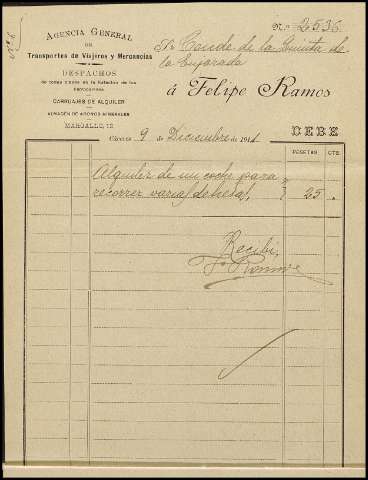 N.º 2536
AGENCIA GENERAL
DE
Transportes de Viajeros y Mercancías
DESPACHOS
CARRUAJES DE ALQUILER
ALMACÉN DE ABONOS MINERALES
MARGALLO, 12
Sr Conde de la Quinta de
la Enjarada
á Felipe Ramos
Cáceres 9 de Diciembre de 1911
DEBE
PESETAS CTS.
Alquiler de un coche para
recorrer varias dehesas, 25
Recibí,
F. Ramos